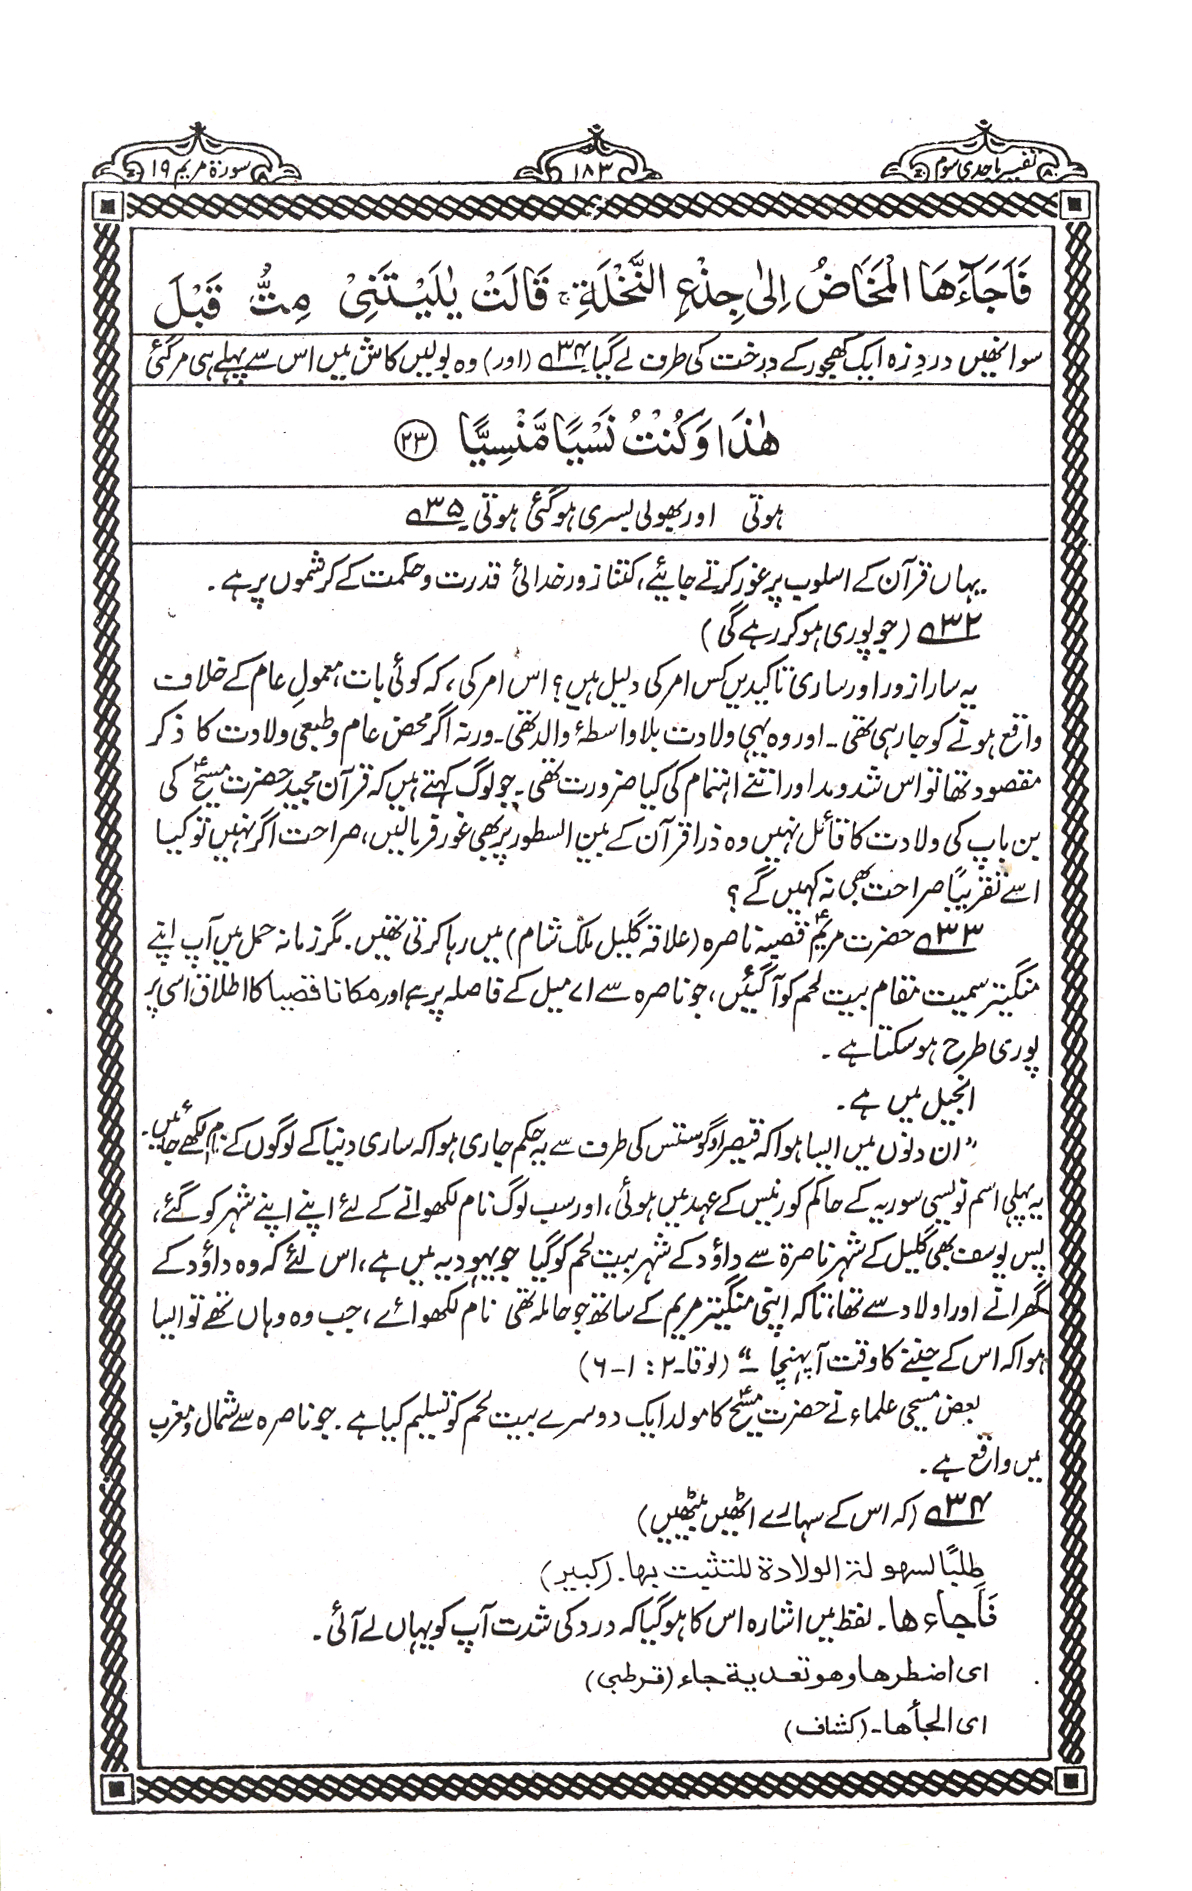 تفسیر ماجدی سوم
۱۸۳
سورۃ مریم ۱۹
فَاَجَآءَهَا الْمَخَاضُ اِلٰی جِذْعِ النَّخْلَةِ ۚ قَالَتْ یٰلَیْتَنِیْ مِتُّ قَبْلَ
سو انھیں دردِ زہ ایک کھجور کے درخت کی طرف لے گیا ۳۴؎ (اور) وہ بولیں کاش میں اس سے پہلے ہی مرگئی
هٰذَا وَكُنْتُ نَسْیًا مَّنْسِیًّا ﴿۲۳﴾
ہوتی اور بھولی بسری ہوگئی ہوتی ۳۵؎
یہاں قرآن کے اسلوب پر غور کرتے جائیے، کتنا زور خدائی قدرت و حکمت کے کرشموں پر ہے۔
۳۲؎ (جو پوری ہو کر رہے گی)
یہ سارا زور اور ساری تاکیدیں کس امر کی دلیل ہیں؟ اس امر کی، کہ کوئی بات، معمولِ عام کے خلاف
واقع ہونے کو جارہی تھی۔ اور وہ یہی ولادت بلا واسطۂ والد تھی۔ ورنہ اگر محض عام و طبعی ولادت کا ذکر
مقصود تھا تو اس شد و مد اور اتنے اہتمام کی کیا ضرورت تھی۔ جو لوگ کہتے ہیں کہ قرآن مجید حضرت مسیحؑ کی
بن باپ کی ولادت کا قائل نہیں وہ ذرا قرآن کے بین السطور پر بھی غور فرمالیں، صراحت اگر نہیں تو کیا
اسے تقریباً صراحت بھی نہ کہیں گے؟
۳۳؎ حضرت مریمؑ قصبہ ناصرہ (علاقہ گلیل ملک شام) میں رہا کرتی تھیں۔ مگر زمانہ حمل میں آپ اپنے
منگیتر سمیت مقام بیت لحم کو آگئیں، جو ناصرہ سے ۷۱ میل کے فاصلہ پر ہے اور مکانا قصیا کا اطلاق اسی پر
پوری طرح ہوسکتا ہے۔
انجیل میں ہے۔
”ان دنوں میں ایسا ہوا کہ قیصر اوگوستس کی طرف سے یہ حکم جاری ہوا کہ ساری دنیا کے لوگوں کے نام لکھے جائیں۔
یہ پہلی اسم نویسی سوریہ کے حاکم کورنیس کے عہد میں ہوئی، اور سب لوگ نام لکھوانے کے لئے اپنے اپنے شہر کو گئے،
پس یوسف بھی گلیل کے شہر ناصرۃ سے داؤد کے شہر بیت لحم کو گیا جو یہودیہ میں ہے، اس لئے کہ وہ داؤد کے
گھرانے اور اولاد سے تھا، تاکہ اپنی منگیتر مریم کے ساتھ جو حاملہ تھی نام لکھوائے، جب وہ وہاں تھے تو ایسا
ہوا کہ اس کے جننے کا وقت آپہنچا۔“ (لوقا۔۲: ۱-۶)
بعض مسیحی علماء نے حضرت مسیحؑ کا مولد ایک دوسرے بیت لحم کو تسلیم کیا ہے۔ جو ناصرہ سے شمال و مغرب
میں واقع ہے۔
۳۴؎ (کہ اس کے سہارے اٹھیں بیٹھیں)
طلبًا لسهولة الولادة للتثبت بها۔ (کبیر)
فَاَجاءها۔ لفظ میں اشارہ اس کا ہوگیا کہ درد کی شدت آپ کو یہاں لے آئی۔
ای اضطرها وهو تعدیة جاء (قرطبی)
ای الجأها۔ (کشاف)